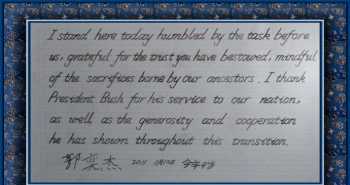 I stand here today humbled by the task before
us, grateful for the trust you have bestowed, mindful
of the sacrifices borne by our ancestors. I thank
President Bush for his service to our nation,
as well as the generosity and cooperation
he has shown throughout this transition.
郭荣杰 2011